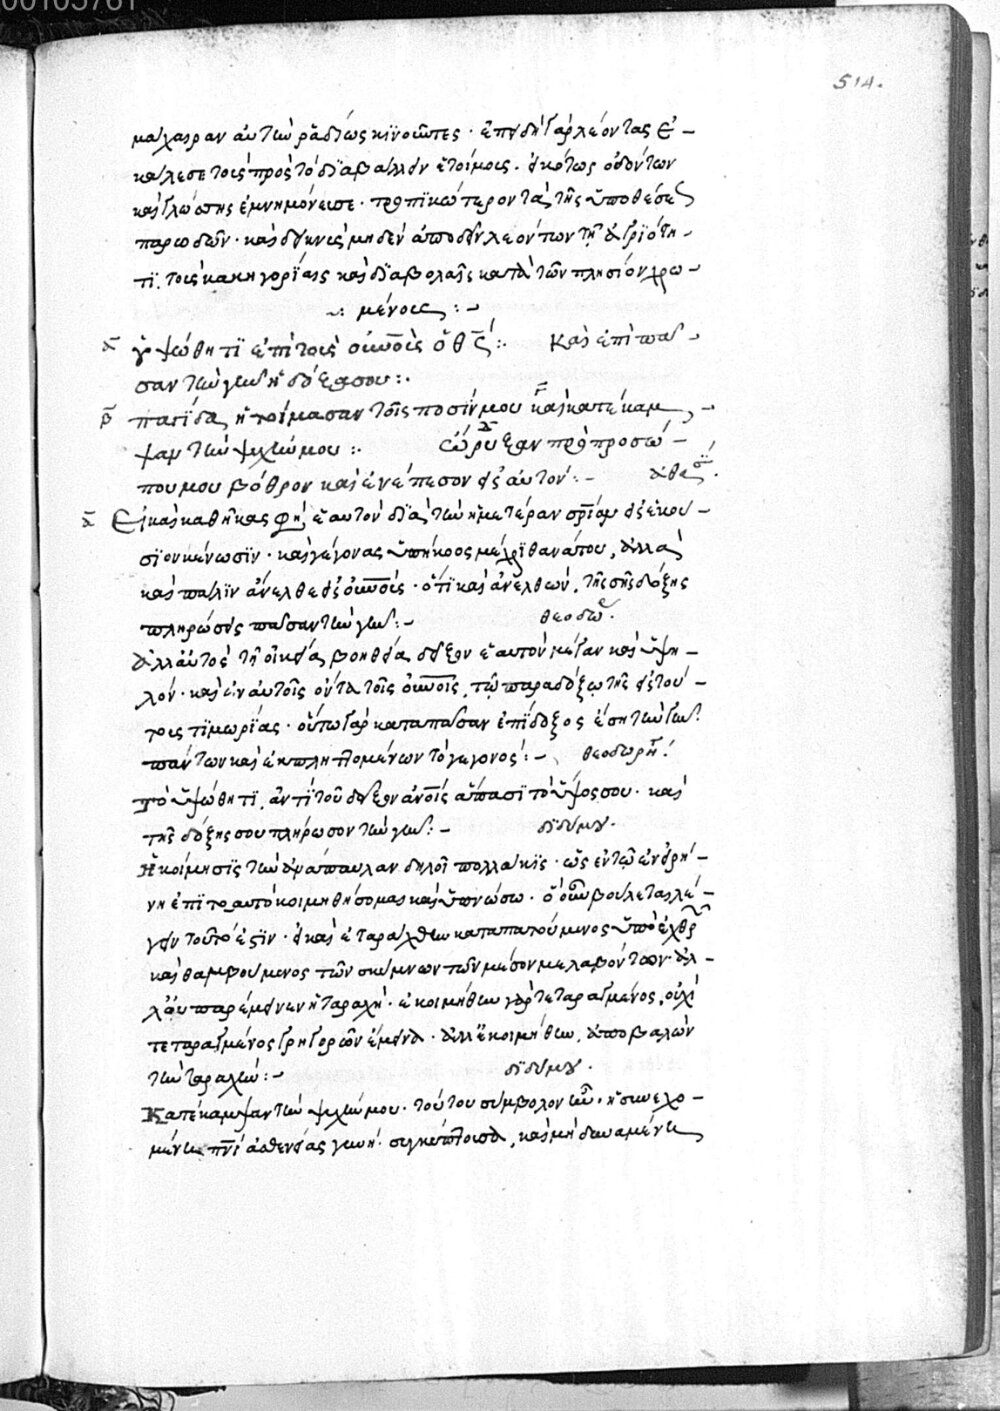 00105761
514.
μάχαιραν αὐτῶν ῥαδίως κινοῦντες· ἐπειδὴ γὰρ λέοντας ἐ-
κάλεσε τοὺς πρὸς τὸ διαβάλλειν ἑτοίμους· εἰκότως ὀδόντων
καὶ γλώσσης ἐμνημόνευσε· τροπικώτερον τὰ τῆς ὑποθέσεως
παρῳδῶν· καὶ δεικνὺς μηδὲν ἀποδεῖν λεόντων τῇ ἀγριότη-
τι. τοὺς κακηγορίαις καὶ διαβολαῖς κατὰ τῶν πλησίον χρω-
μένους :-
α ὑψώθητι ἐπὶ τοὺς οὐνοὺς ὁ θς :· Καὶ ἐπὶ πᾶ-
σαν τὴν γῆν ἡ δόξα σου :·
β παγίδα ἡτοίμασαν τοῖς ποσίν μου γ καὶ κατέκαμ-
ψαν τὴν ψυχήν μου :· δ ὤρυξαν πρὸ προσώ-
που μου βόθρον καὶ ἐνέπεσον εἰς αὐτόν :- ἀθας.
α Εἰ καὶ καθῆκας φησὶ ἑαυτὸν διὰ τὴν ἡμετέραν σριαν εἰς ἑκού-
σιον κένωσιν· καὶ γέγονας ὑπήκοος μέχρι θανάτου, ἀλλὰ
καὶ πάλιν ἄνελθε εἰς οὐνούς· ὅτι καὶ ἀνελθών, τῆς σῆς δόξης
πληρώσεις πᾶσαν τὴν γῆν :- θεοδώ.
Ἀλλ' αὐτὸς τῇ οἰκείᾳ βοηθείᾳ δεῖξον ἑαυτὸν μέγαν καὶ ὑψη-
λόν· καὶ ἐν αὐτοῖς ὄντα τοῖς οὐνοῖς, τῷ παραδόξῳ τῆς εἰς τού-
τους τιμωρίας· οὕτω γὰρ κατὰ πᾶσαν ἐπίδοξος ἔσῃ τὴν γῆν
πάντων καὶ ἐκπληττομένων τὸ γεγονός :- θεοδωρή.
Τὸ ὑψώθητι, ἀντὶ τοῦ δεῖξον ἀνοις ἅπασι τὸ ὕψος σου· καὶ
τῆς δόξης σου πλήρωσον τὴν γῆν :- διδύμου.
Ἡ κοίμησις τὴν ἀνάπαυλαν δηλοῖ πολλάκις· ὡς ἐν τῷ ἐν εἰρή-
νῃ ἐπὶ το αυτὸ κοιμηθήσομαι καὶ ὑπνώσω· ὃ οὖν βούλεται λέ-
γειν τοῦτό ἐστιν· εἰ καὶ ἐταράχθην καταπατούμενος ὑπὸ ἐχθρῶν
καὶ θαμβούμενος τῶν σκύμνων τῶν μέσον με λαβόντων· ἀλ-
λ' οὐ παρέμεινεν ἡ ταραχή· ἐκοιμήθην γὰρ τεταραγμένος, οὐχὶ
τεταραγμένος γρηγορῶν ἔμεινα· ἀλλ' ἐκοιμήθην, ἀποβαλὼν
τὴν ταραχήν :- διδύμου.
Κατέκαμψαν τὴν ψυχήν μου· τούτου σύμβολον ἦν· ἡ συνεχο-
μένη πνι ἀσθενείας γυνή· συγκύπτουσα, καὶ μὴ δυναμένη